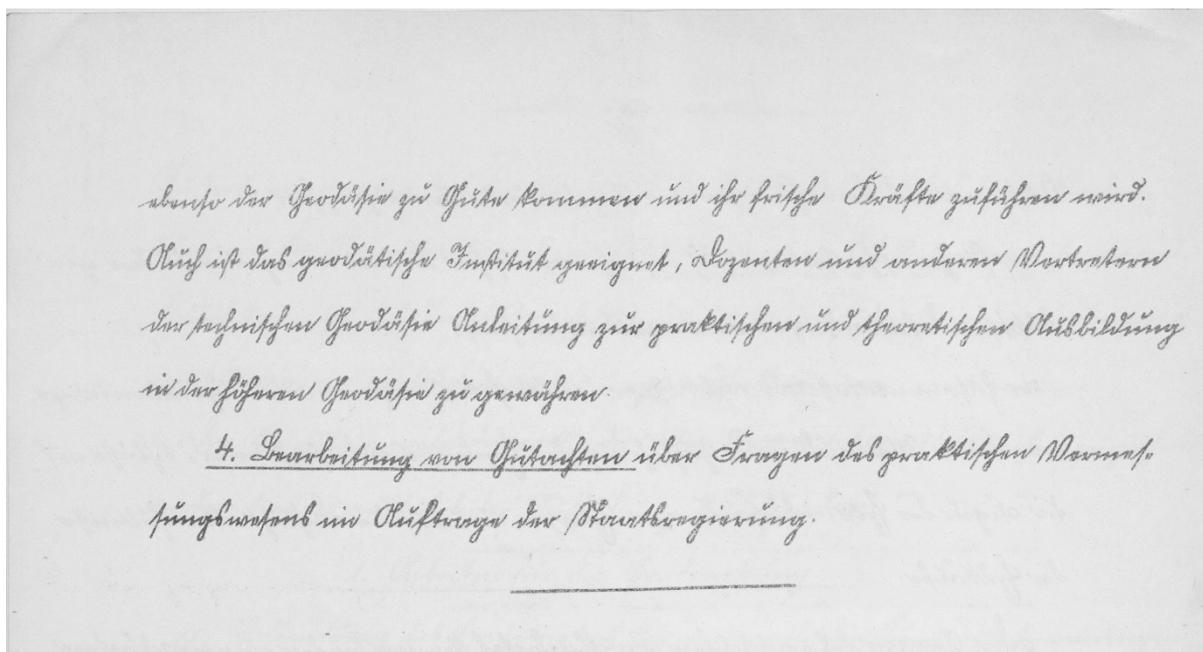 ebenso der Geodäsie zu Gute kommen und ihr frische Kräfte zuführen wird.
Auch ist das geodätische Institut geeignet, Dozenten und anderen Vertretern
der technischen Geodäsie Anleitung zur praktischen und theoretischen Ausbildung
in der höheren Geodäsie zu gewähren.
4. Bearbeitung von Gutachten über Fragen des praktischen Vermes-
sungswesens im Auftrage der Staatsregierung.